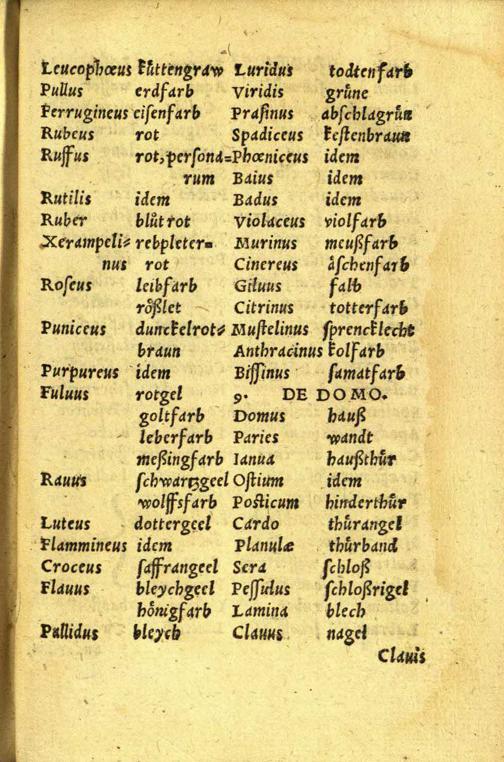 Leucophœus küttengraw
Pullus erdfarb
Ferrugineus eisenfarb
Rubeus rot
Ruffus rot, persona=
rum
Rutilis idem
Ruber blůtrot
Xerampeli= rebpleter=
nus rot
Roseus leibfarb
rößlet
Puniceus dunckelrot=
braun
Purpureus idem
Fuluus rotgel
goltfarb
leberfarb
meßingfarb
Rauus schwartzgeel
wolffsfarb
Luteus dottergeel
Flammineus idem
Croceus saffrangeel
Flauus bleychgeel
hönigfarb
Pallidus bleych
Luridus todtenfarb
Viridis grüne
Prasinus abschlagrün
Spadiceus kestenbraun
Phœniceus idem
Baius idem
Badus idem
Violaceus violfarb
Murinus meußfarb
Cinereus äschenfarb
Giluus falb
Citrinus totterfarb
Mustelinus sprencklecht
Anthracinus kolfarb
Bissinus samatfarb
9. DE DOMO.
Domus hauß
Paries wandt
Ianua haußthür
Ostium idem
Posticum hinderthür
Cardo thürangel
Planulæ thürband
Sera schloß
Pessulus schloßrigel
Lamina blech
Clauus nagel
Clauis